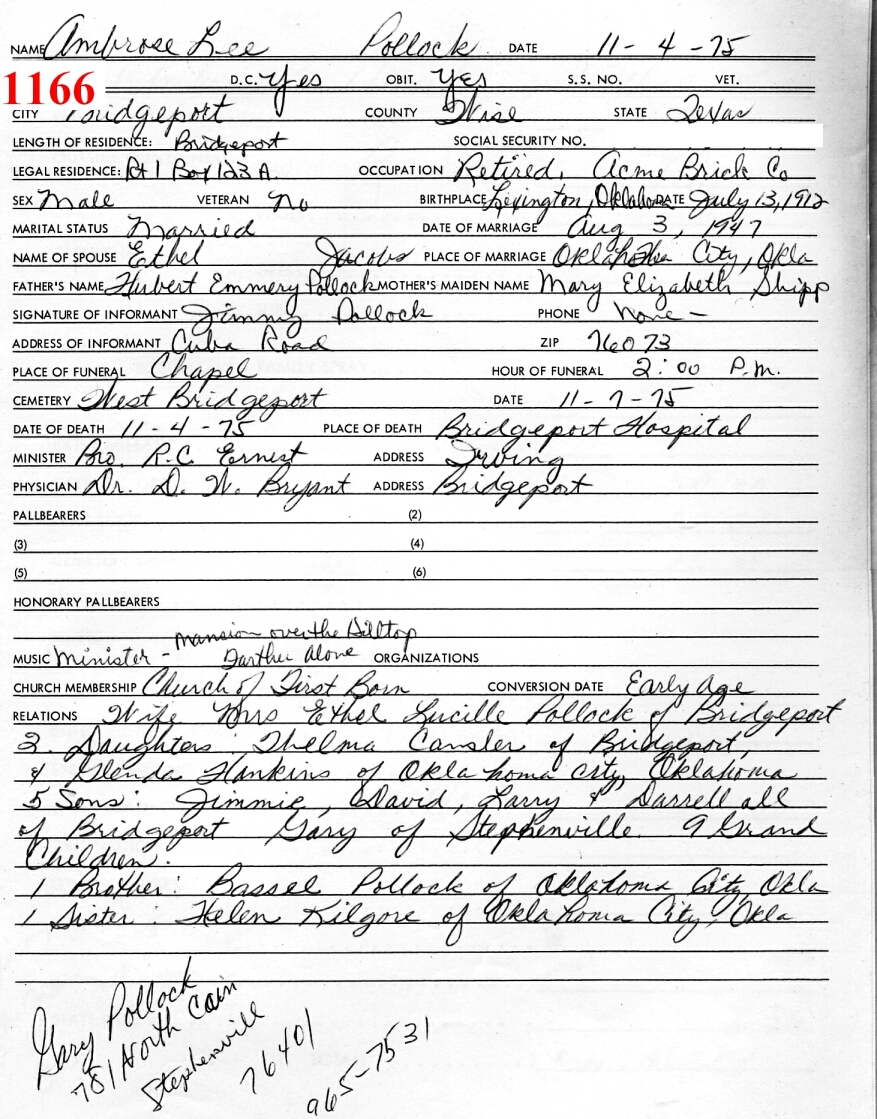 NAME Ambrose Lee Pollock DATE 11-4-75
1166 D.C. Yes OBIT. Yes S.S. NO. VET.
CITY Bridgeport COUNTY Wise STATE Texas
LENGTH OF RESIDENCE: Bridgeport SOCIAL SECURITY NO.
LEGAL RESIDENCE: Rt 1 Box 123 A OCCUPATION Retired, Acme Brick Co
SEX Male VETERAN No BIRTHPLACE Lexington, Oklahoma DATE July 13, 1912
MARITAL STATUS Married DATE OF MARRIAGE Aug 3, 1947
NAME OF SPOUSE Ethel Jacobs PLACE OF MARRIAGE Oklahoma City, Okla
FATHER'S NAME Hubert Emmery Pollock MOTHER'S MAIDEN NAME Mary Elizabeth Shipp
SIGNATURE OF INFORMANT Jimmy Pollock PHONE None -
ADDRESS OF INFORMANT Cuba Road ZIP 76073
PLACE OF FUNERAL Chapel HOUR OF FUNERAL 2:00 P.M.
CEMETERY West Bridgeport DATE 11-7-75
DATE OF DEATH 11-4-75 PLACE OF DEATH Bridgeport Hospital
MINISTER Bro. R.C. Ernest ADDRESS Irving
PHYSICIAN Dr. D. W. Bryant ADDRESS Bridgeport
PALLBEARERS (2)
(3) (4)
(5) (6)
HONORARY PALLBEARERS
Mansion over the Hilltop
MUSIC Minister - Farther Alone ORGANIZATIONS
CHURCH MEMBERSHIP Church of First Born CONVERSION DATE Early Age
RELATIONS Wife Mrs Ethel Lucille Pollock of Bridgeport
2. Daughters. Thelma Cansler of Bridgeport,
& Glenda Hankins of Oklahoma city, Oklahoma
5 Sons: Jimmie, David, Larry & Darrell all
of Bridgeport Gary of Stephenville. 9 Grand
Children.
1 Brother: Bassel Pollock of Oklahoma City, Okla
1 Sister: Helen Kilgore of Oklahoma City, Okla
Gary Pollock
781 North Cain
Stephenvill
76401
965-7531